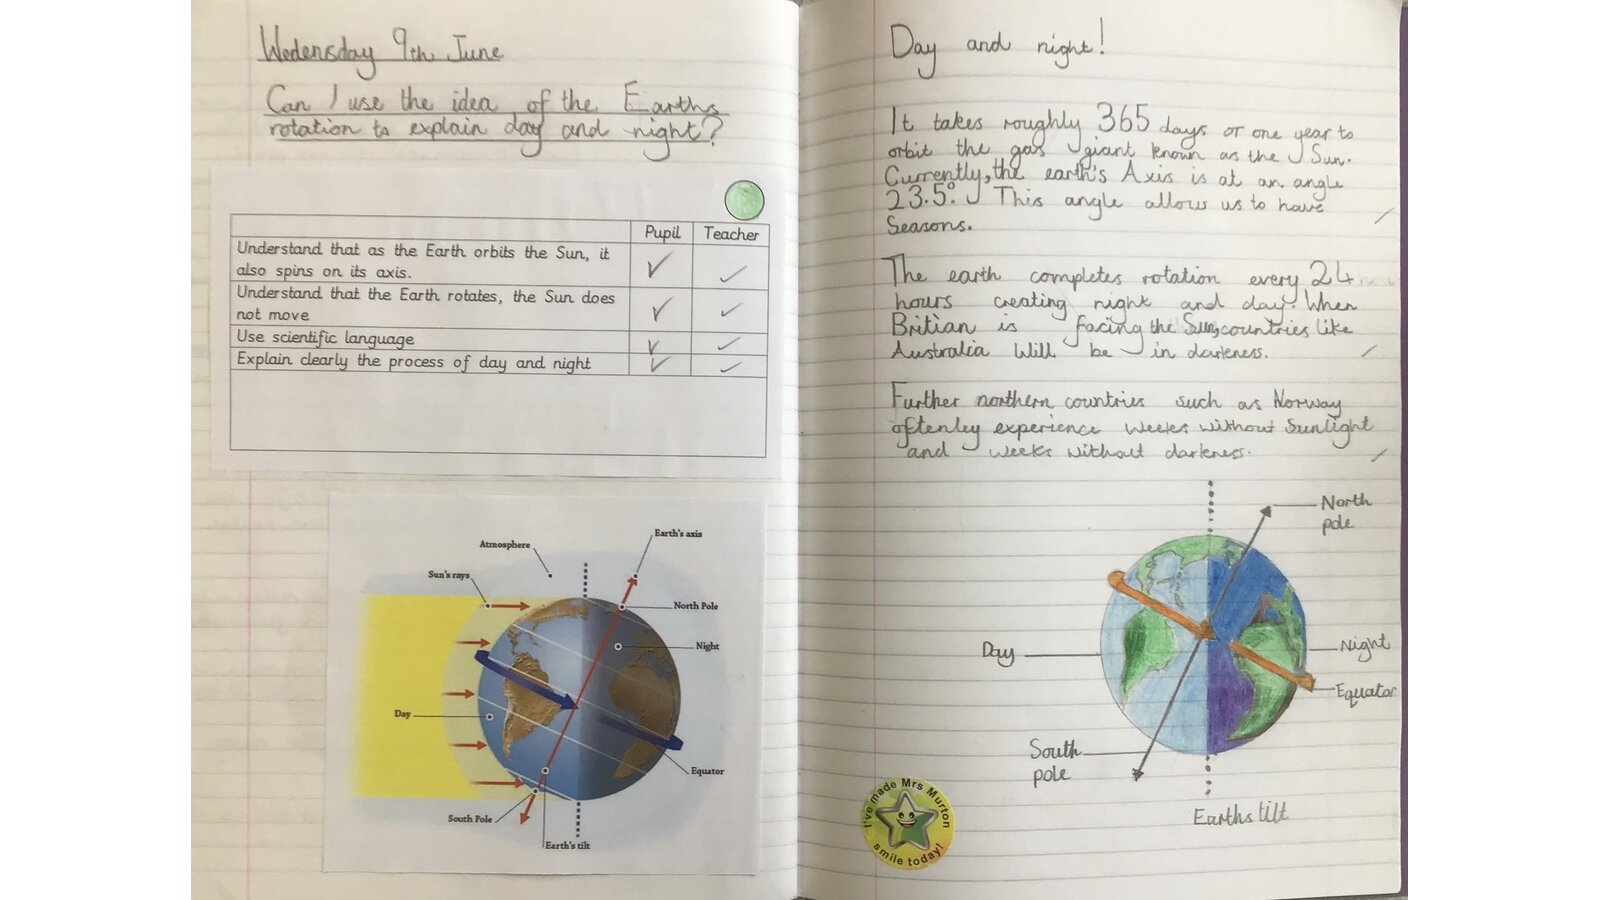 Wedensday 9th June
Can I use the idea of the Earths
rotation to explain day and night?
Pupil Teacher
Understand that as the Earth orbits the Sun, it
also spins on its axis.
Understand that the Earth rotates, the Sun does
not move
Use scientific language
Explain clearly the process of day and night
Earth's axis
Atmosphere
Sun's rays
North Pole
Night
Day
Equator
South Pole
Earth's tilt
Day and night!
It takes roughly 365 days or one year to
orbit the gas giant known as the Sun.
Currently, the earth's Axis is at an angle
23.5°. This angle allows us to have
Seasons.
The earth completes rotation every 24
hours creating night and day. When
Britian is facing the Sun, countries like
Australia will be in darkness.
Further northern countries such as Norway
oftenley experience weeks without Sunlight
and weeks without darkness.
North
pole
Day
Night
Equator
South
pole
Earths tilt
I've made Mrs Murton
smile today!